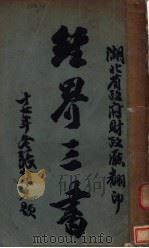 湖北省政府財政廳翻印
經界三書
十七年冬張題